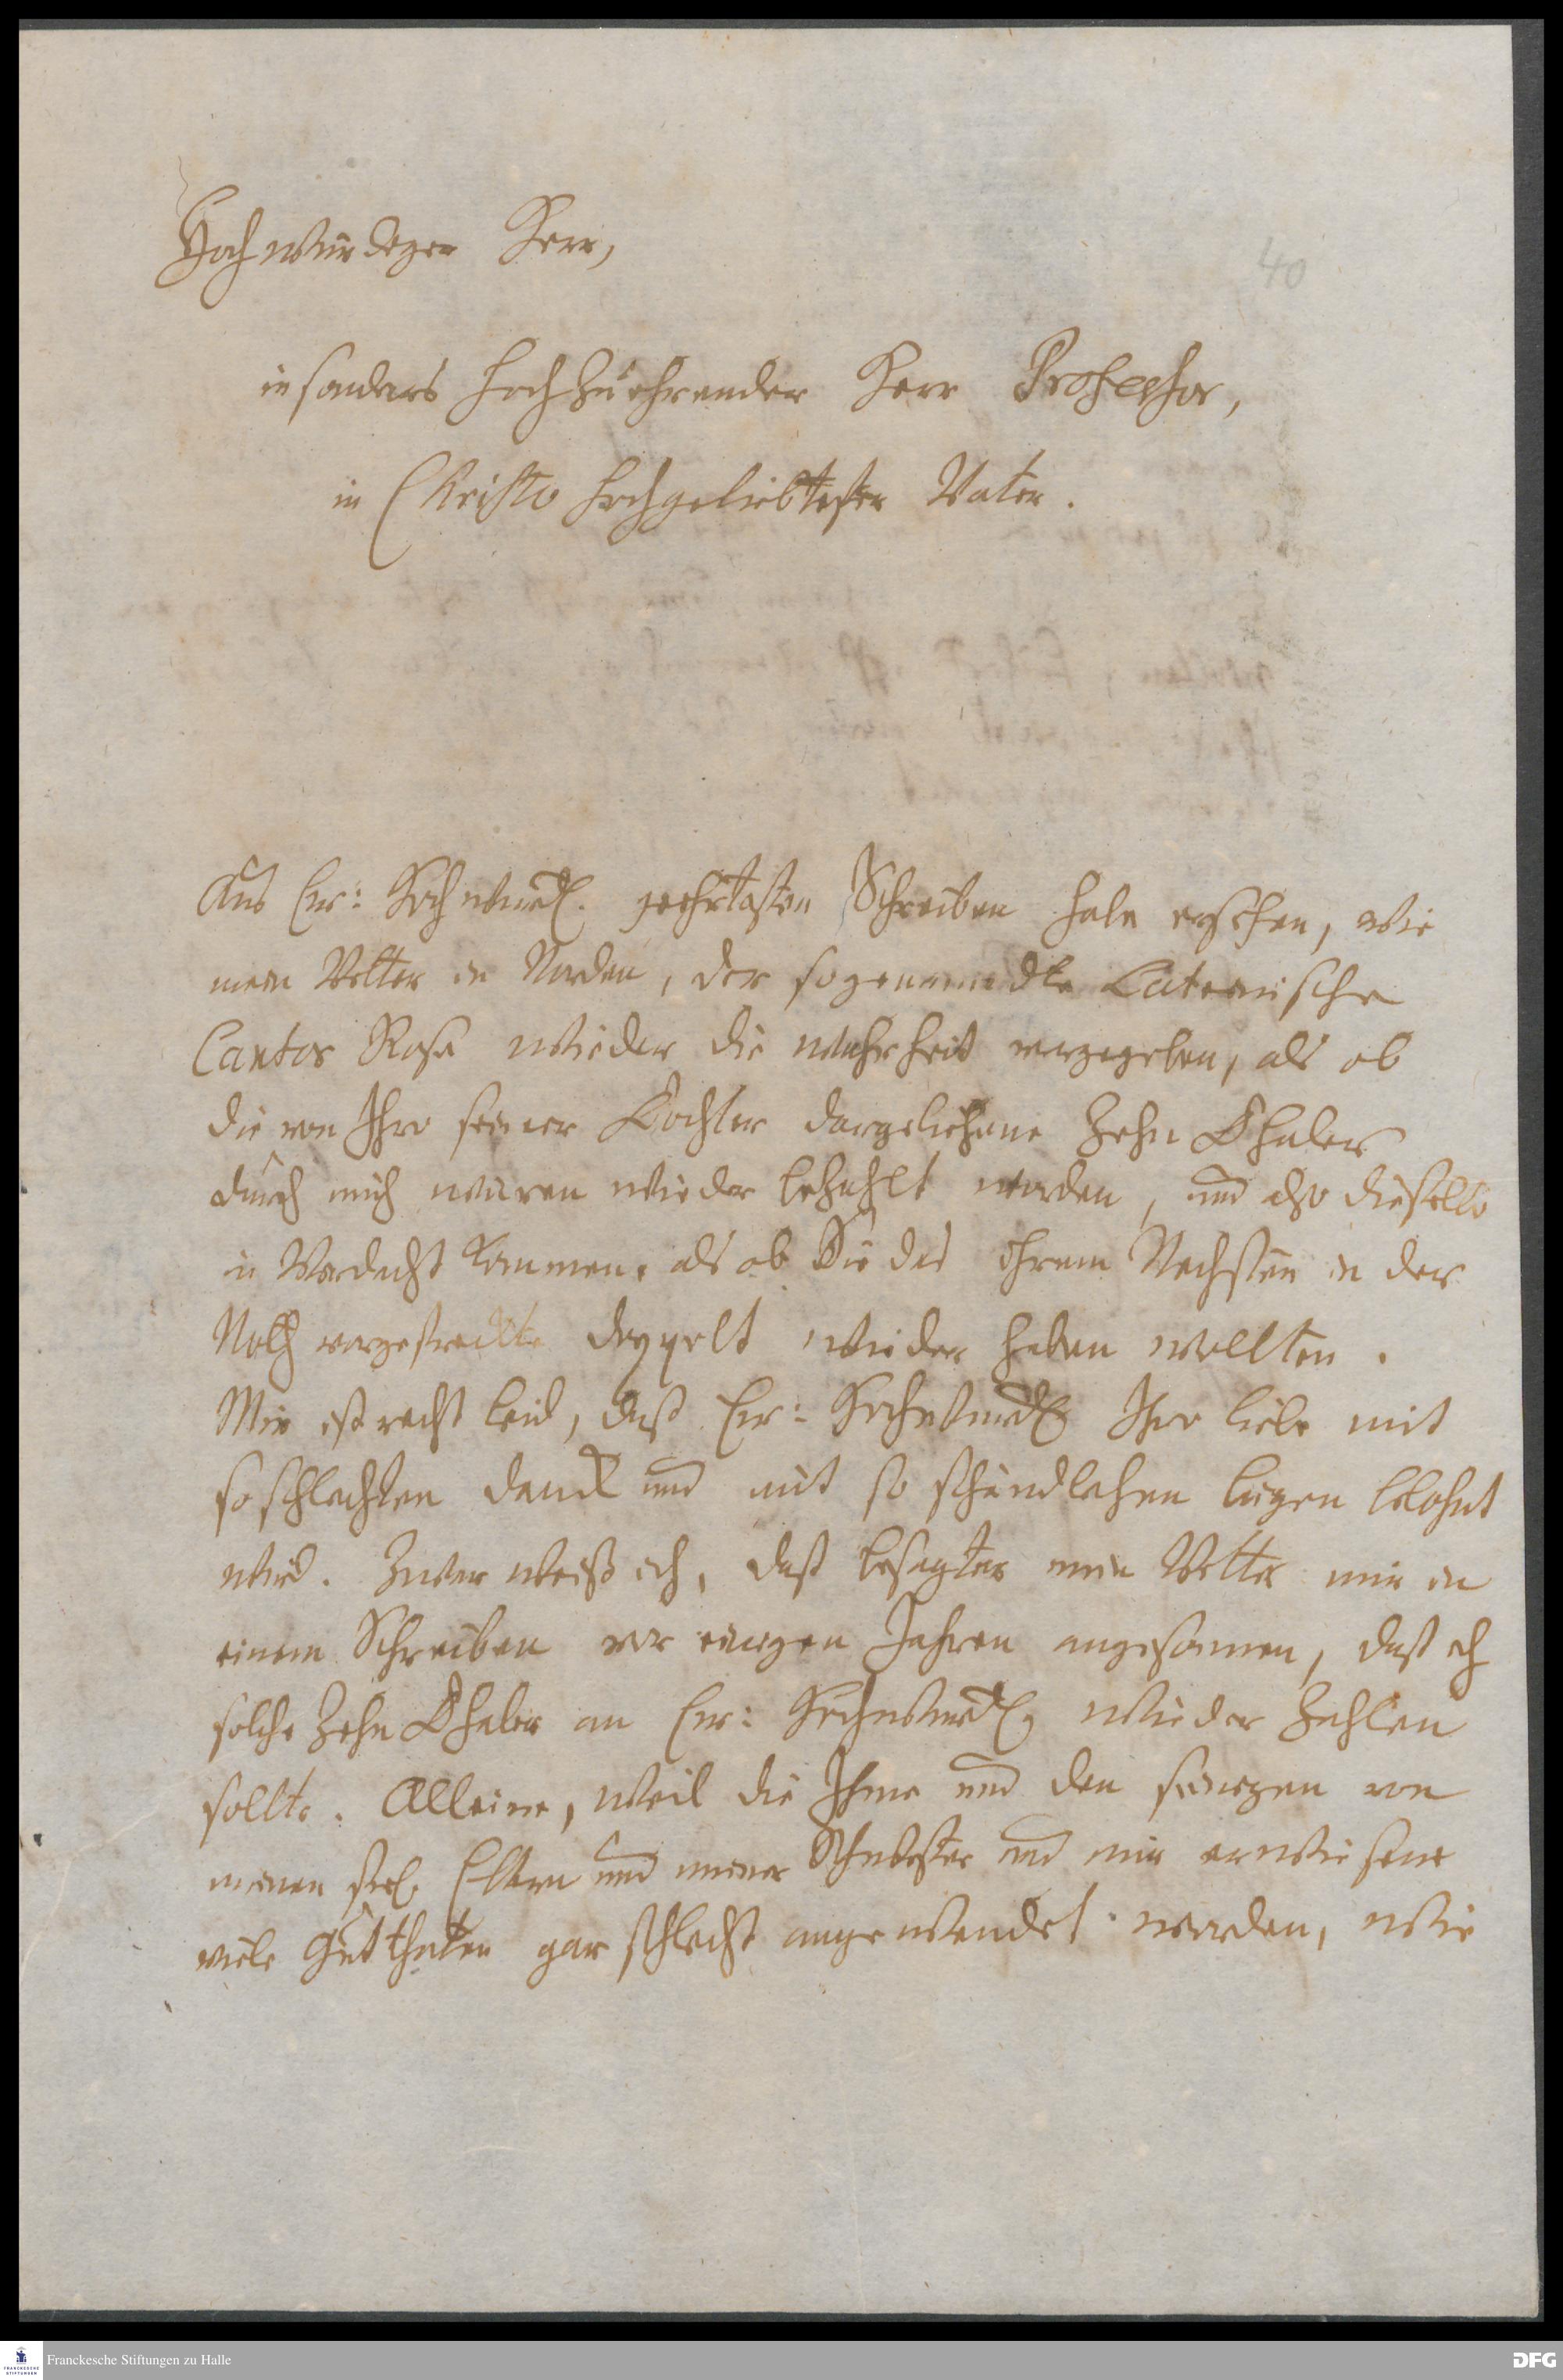 Hochwürdiger Herr,
40
insonders hochzuehrender Herr Professor,
in Christo hochgeliebtester Vater.
Aus Ew: Hochwürd. geehrtesten Schreiben habe ersehen, wie
mein Vetter in Norden, der sogenandte Lateinische
Cantor Rosa wieder die wahrheit vorgegeben, als ob
die von Ihro seiner Tochter dargeliehene Zehn Thaler
durch mich wären wieder bezahlt worden, und also dieselbe
in Verdacht kommen, als ob Sie das ihrem Nechsten in der
Noth vorgestreckte doppelt wieder haben wollten.
Mir ist recht leid, daß Ew: Hochwürd. Ihro liebe mit
so schlechten danck und mit so schändlichen lügen belohnt
wird. Zwar weiß ich, daß besagter mein Vetter mir in
einem Schreiben vor einigen Jahren angesonnen, daß ich
solche Zehn Thaler an Ew: Hochwürd. wieder Zahlen
sollte. Alleine, weil die Ihme und den seinigen von
meinen seel. Eltern und meiner Schwester und mir erwiesene
viele Gutthaten gar schlecht angewendet worden, wie
Franckesche Stiftungen zu Halle
FRANCKESCHE
STIFTUNGEN
DFG